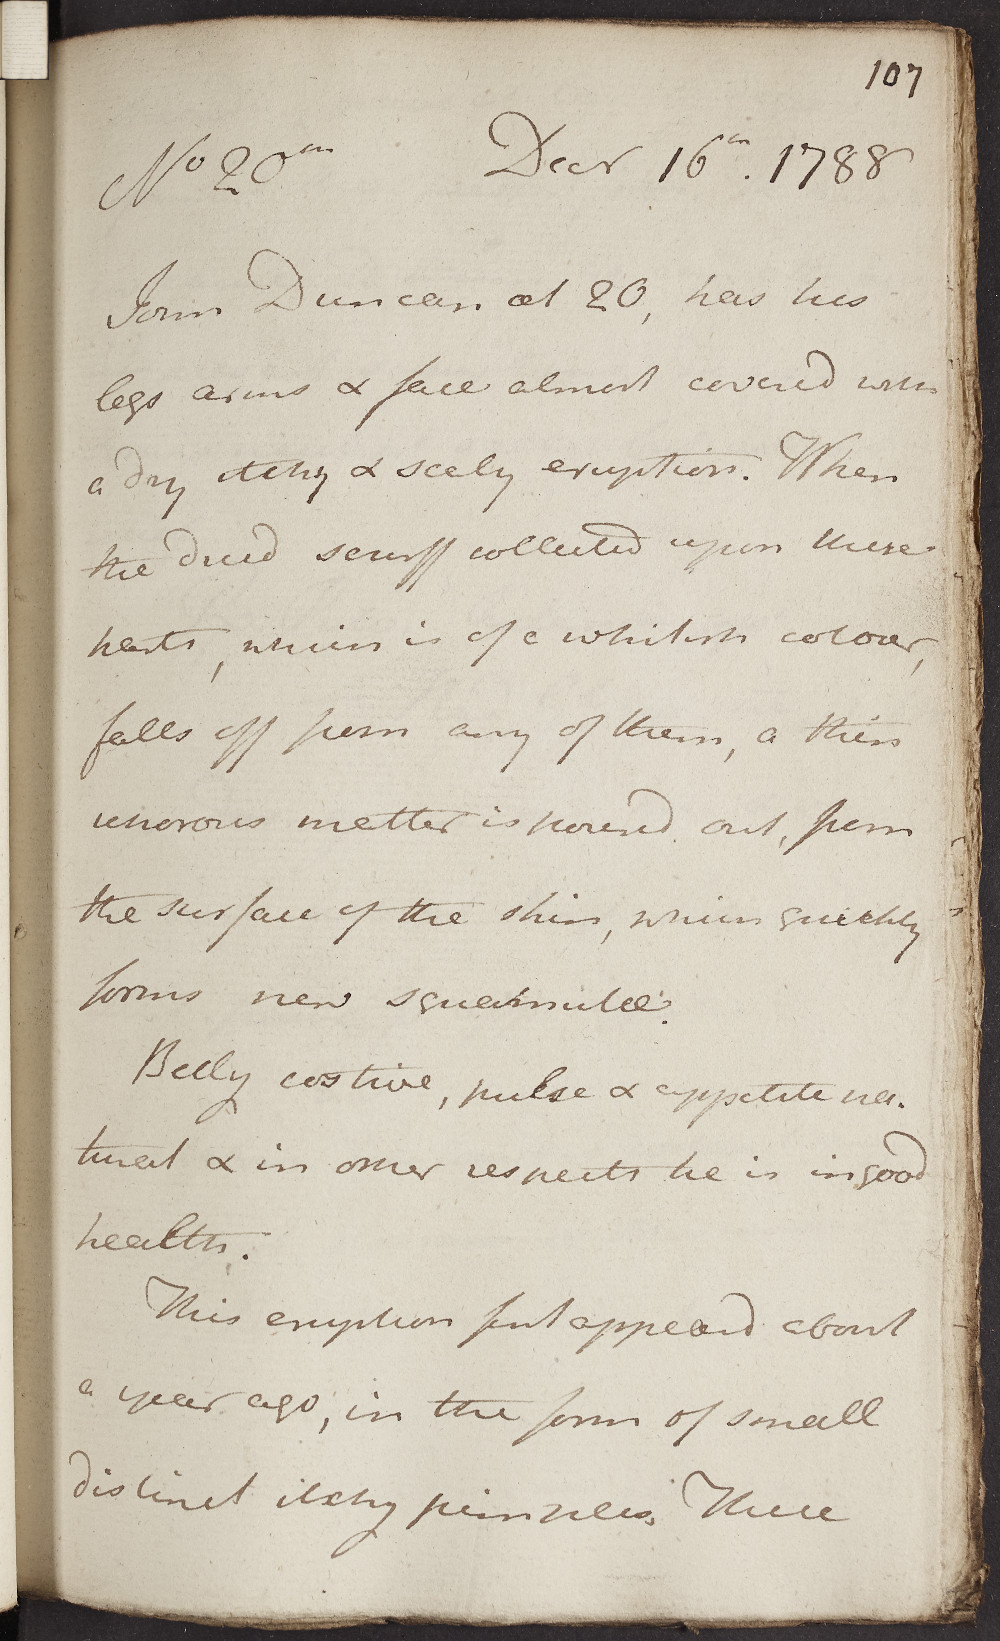 107
No 20th Decr 16th. 1788
John Duncan æt 20, has his
legs arms & face almost covered with
a dry itchy & scaly eruption. When
the dried scurff collected upon these
parts, which is of a whitish colour,
falls off from any of them, a thin
ichorous matter is poured out, from
the surface of the skin, which quickly
forms new squamulæ.
Belly costive, pulse & appetite na-
tural & in other respects he is in good
health.
This eruption first appeared about
a year ago, in the form of small
distinct itchy pimples. These